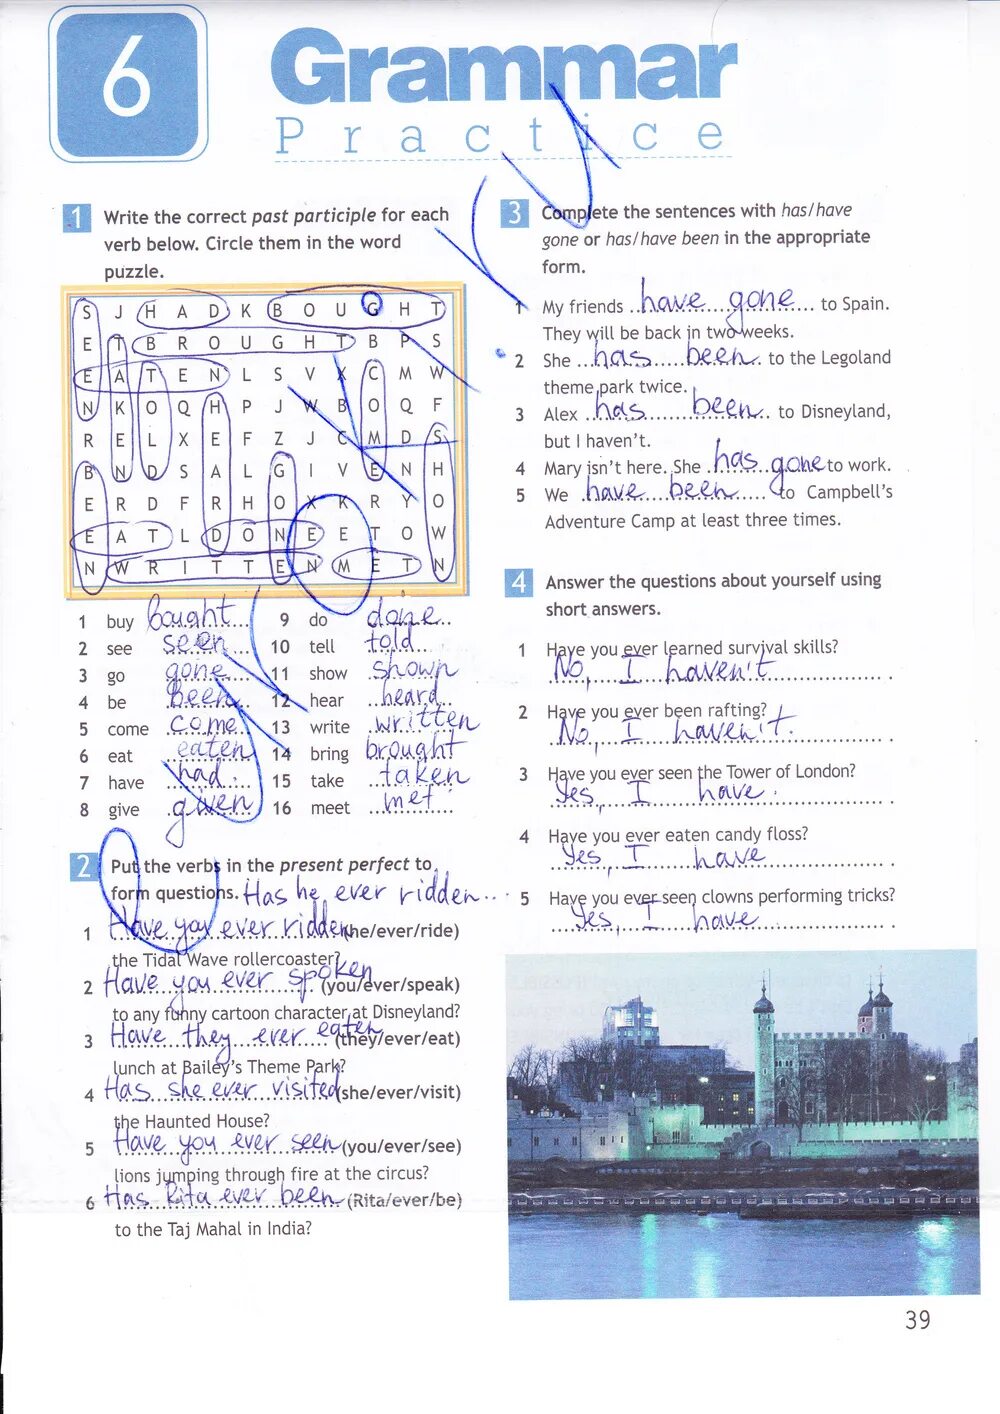 6
Grammar
Practice
1 Write the correct past participle for each
verb below. Circle them in the word
puzzle.
S J H A D K B O U G H T
E T B R O U G H T B P S
E A T E N L S V X C M W
N K O Q H P J W B O Q F
R E L X E F Z J C M D S
B N D S A L G I V E N H
E R D F R H O X K R Y O
E A T L D O N E E T O W
N W R I T T E N M E T N
1 buy bought
2 see seen
3 go gone
4 be been
5 come come
6 eat eaten
7 have had
8 give given
9 do done
10 tell told
11 show shown
12 hear heard
13 write written
14 bring brought
15 take taken
16 meet met
2 Put the verbs in the present perfect to
form questions. Has he ever ridden...
1 Have you ever ridden (he/ever/ride)
the Tidal Wave rollercoaster?
2 Have you ever spoken (you/ever/speak)
to any funny cartoon character at Disneyland?
3 Have they ever eaten (they/ever/eat)
lunch at Bailey's Theme Park?
4 Has she ever visited (she/ever/visit)
the Haunted House?
5 Have you ever seen (you/ever/see)
lions jumping through fire at the circus?
6 Has Rita ever been (Rita/ever/be)
to the Taj Mahal in India?
3 Complete the sentences with has/have
gone or has/have been in the appropriate
form.
1 My friends have gone to Spain.
They will be back in two weeks.
2 She has been to the Legoland
theme park twice.
3 Alex has been to Disneyland,
but I haven't.
4 Mary isn't here. She has gone to work.
5 We have been to Campbell's
Adventure Camp at least three times.
4 Answer the questions about yourself using
short answers.
1 Have you ever learned survival skills?
No, I haven't
2 Have you ever been rafting?
No, I haven't.
3 Have you ever seen the Tower of London?
Yes, I have.
4 Have you ever eaten candy floss?
Yes, I have
5 Have you ever seen clowns performing tricks?
Yes, I have
39